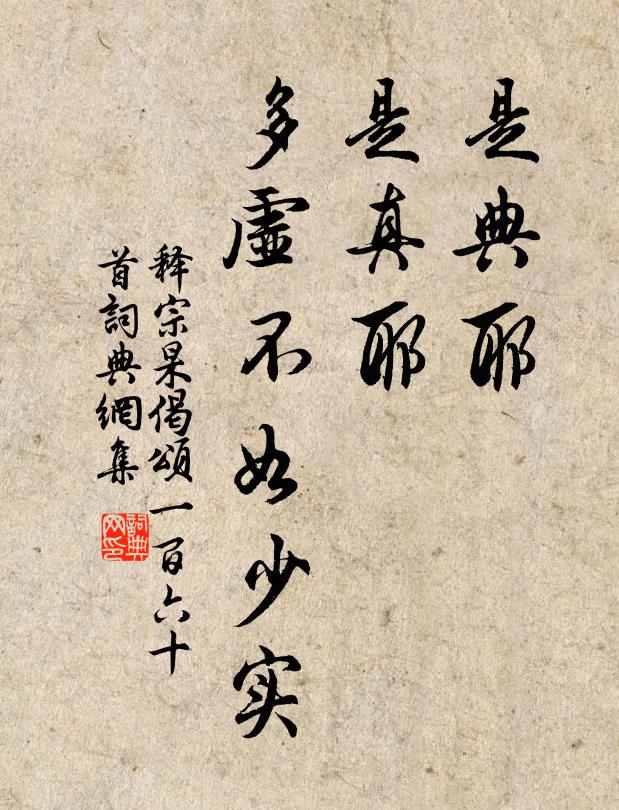 是典耶
是真耶
多虛不如少实
释宗杲偈頌一百六十
首詞典網集
詞典
网印